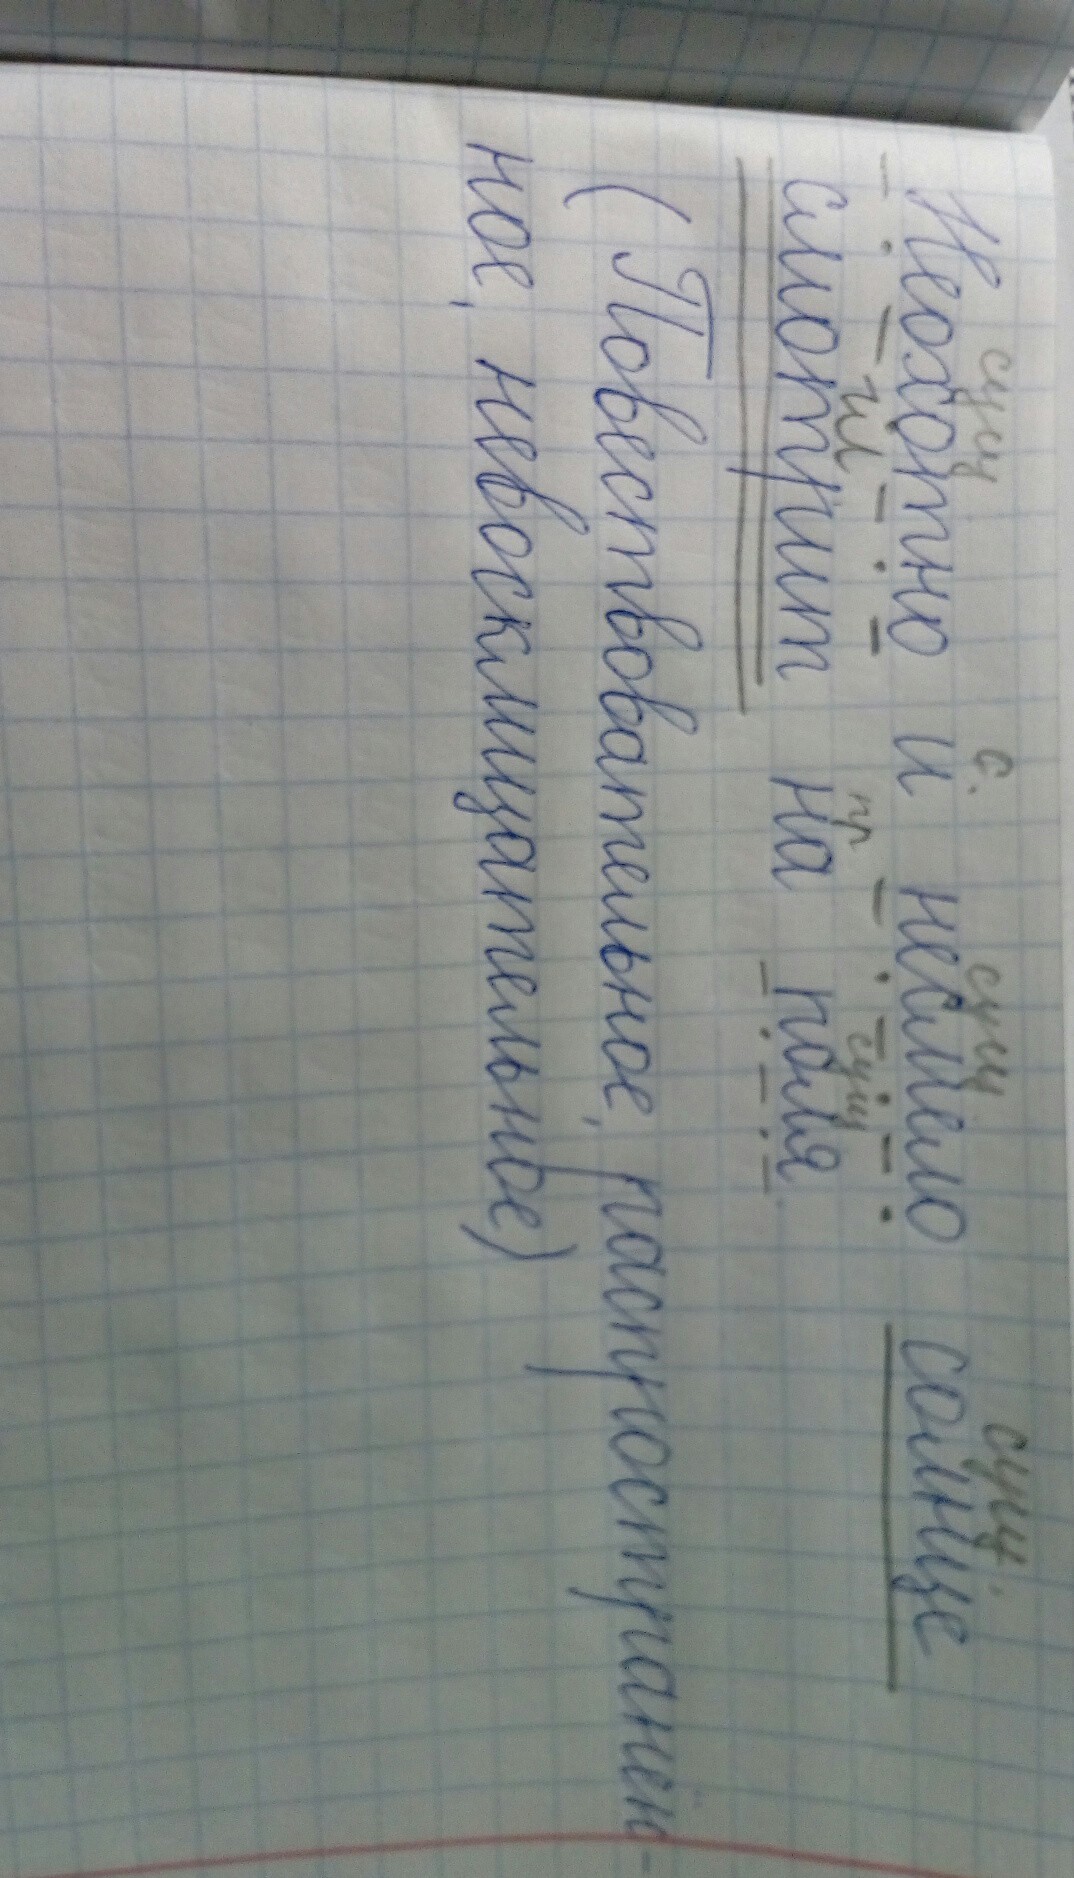 сущ с. сущ сущ.
Неохотно и несмело солнце
гл пр сущ
смотрит на поля.
(Повествовательное, распространён-
ное, невосклицательное)